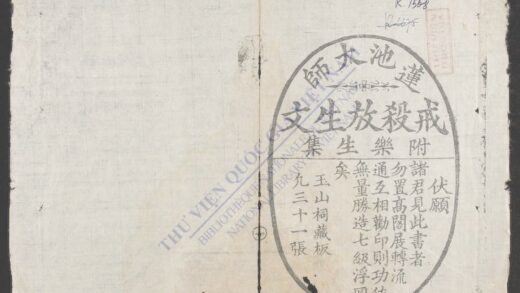 R.1558
蓮池大師
戒殺放生文
附樂生集
伏願
諸君見此書者
勿置高閣展轉流
通互相勸印則功
無量勝造七級浮圖
矣
玉山祠藏板
凡三十一張
THƯ VIỆN QUỐC GIA VIỆT NAM
BIBLIOTHÈQUE NATIONALE
NATIONAL LIBRARY